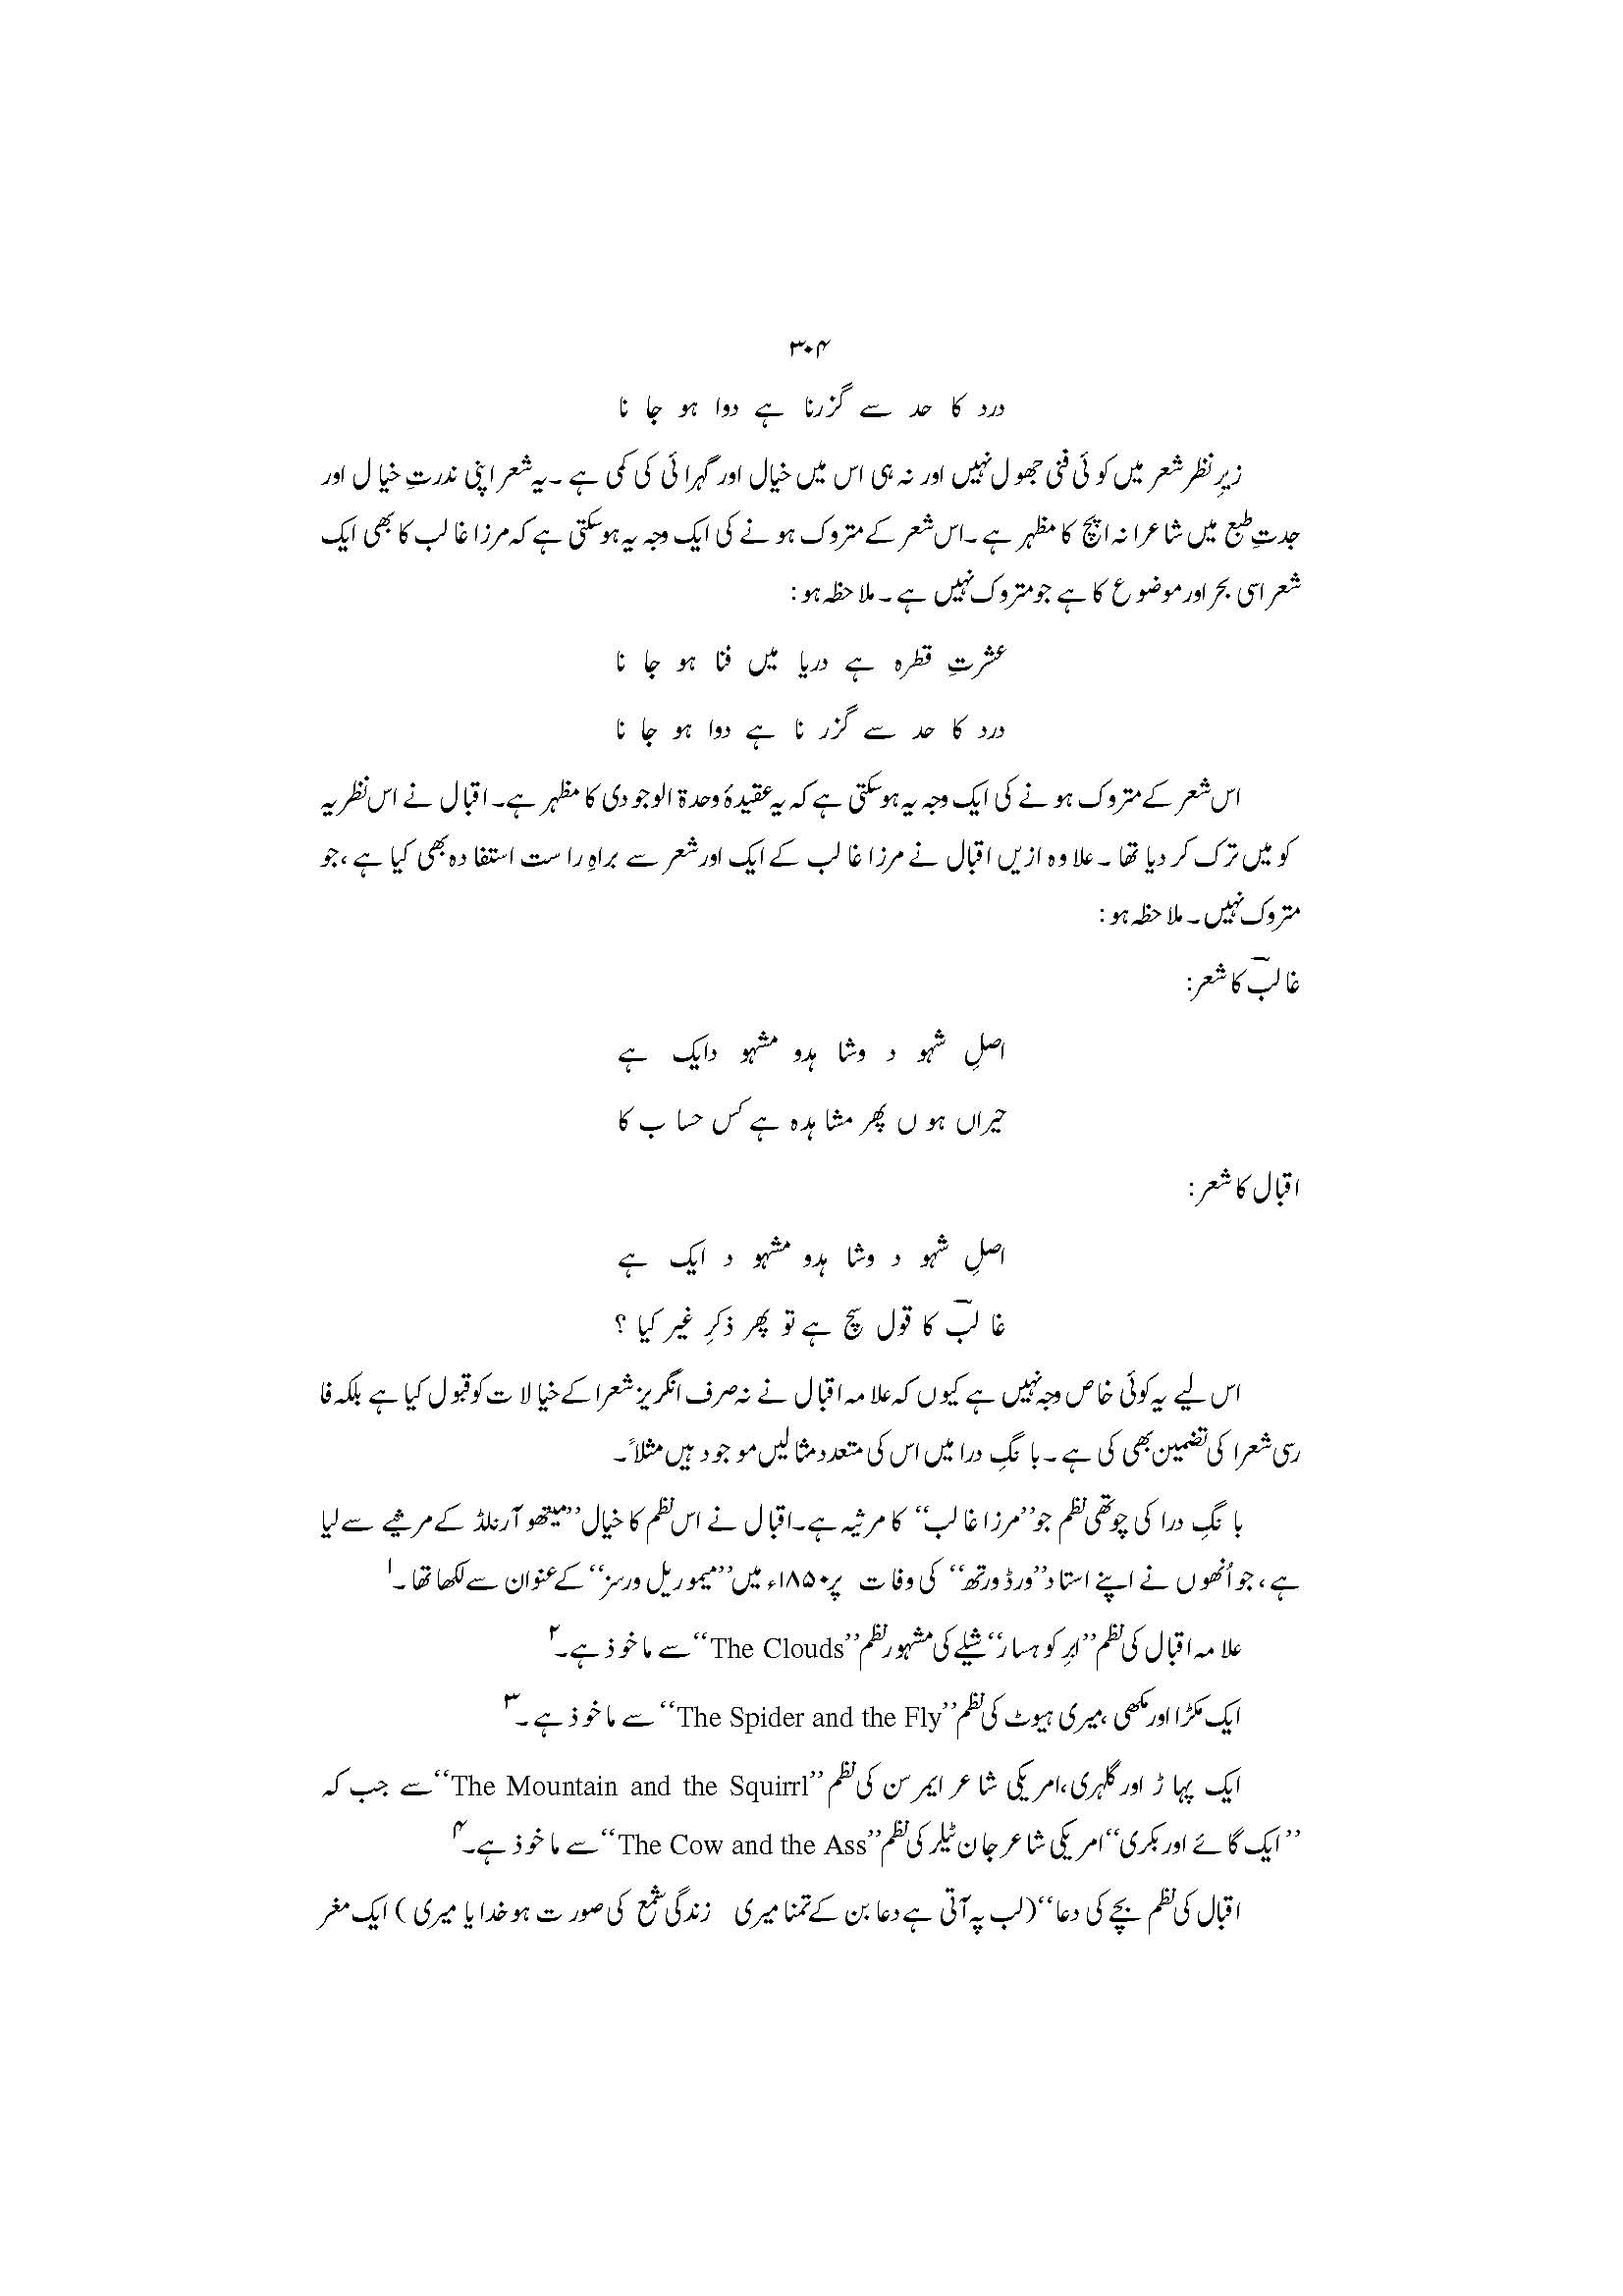 ۳۰۴
درد کا حد سے گزرنا ہے دوا ہو جا نا
زیرِ نظر شعر میں کوئی فنی جھول نہیں اور نہ ہی اس میں خیال اور گہرائی کی کمی ہے ۔یہ شعر اپنی ندرتِ خیا ل اور
جدتِ طبع میں شاعرا نہ اپچ کا مظہر ہے ۔اس شعر کے متروک ہو نے کی ایک وجہ یہ ہوسکتی ہے کہ مرزا غا لب کا بھی ایک
شعر اسی بحر اور موضو ع کا ہے جو متروک نہیں ہے ۔ ملا حظہ ہو :
عشرتِ قطرہ ہے دریا میں فنا ہو جا نا
درد کا حد سے گزر نا ہے دوا ہو جا نا
اس شعر کے متروک ہو نے کی ایک وجہ یہ ہوسکتی ہے کہ یہ عقیدۂ وحدۃ الوجودی کا مظہر ہے۔ اقبال نے اس نظریہ
کو میں ترک کر دیا تھا ۔ علا وہ ازیں اقبال نے مرزا غا لب کے ایک اور شعر سے براہِ را ست استفا دہ بھی کیا ہے ،جو
متروک نہیں ۔ ملا حظہ ہو :
غالبؔ کا شعر:
اصلِ شہو د وشا ہدو مشہو دایک ہے
حیراں ہو ں پھر مشا ہدہ ہے کس حسا ب کا
اقبال کا شعر :
اصلِ شہو د وشا ہدو مشہو د ایک ہے
غا لبؔ کا قول سچ ہے تو پھر ذکرِ غیر کیا ؟
اس لیے یہ کوئی خاص وجہ نہیں ہے کیوں کہ علا مہ اقبال نے نہ صرف انگریز شعرا کے خیا لا ت کو قبول کیا ہے بلکہ فا
رسی شعرا کی تضمین بھی کی ہے ۔ با نگِ درا میں اس کی متعدد مثا لیں مو جود ہیں مثلاً ۔
با نگِ درا کی چوتھی نظم جو’’مرزا غا لب‘‘ کا مرثیہ ہے۔اقبال نے اس نظم کا خیال’’میتھو آرنلڈ کے مرثیے سے لیا
ہے ، جو اُنھوں نے اپنے استا د’’ورڈ ورتھ‘‘ کی وفات پر۱۸۵۰ء میں’’میموریل ورسز‘‘ کے عنوان سے لکھا تھا ۔۱
علا مہ اقبال کی نظم’’ابرِ کو ہسار‘‘ شیلے کی مشہور نظم’’The Clouds‘‘ سے ما خو ذ ہے۔۲
ایک مکڑا اور مکھی ،میری ہیوٹ کی نظم’’The Spider and the Fly‘‘ سے ما خو ذ ہے ۔۳
ایک پہا ڑ اور گلہری،امریکی شا عر ایمر سن کی نظم’’The Mountain and the Squirrl‘‘سے جب کہ
’’ایک گائے اور بکری‘‘امریکی شا عر جان ٹیلر کی نظم’’The Cow and the Ass‘‘سے ما خو ذ ہے۔۴
اقبال کی نظم بچے کی دعا‘‘(لب پہ آتی ہے دعا بن کے تمنا میری زندگی شمع کی صور ت ہو خدا یا میری ) ایک مغر